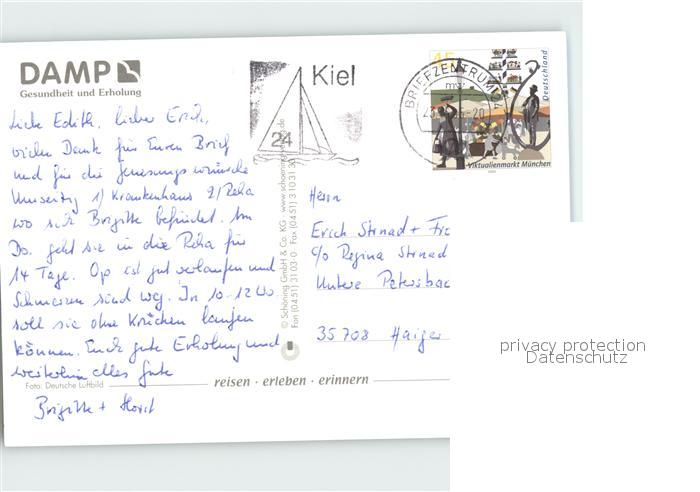 DAMP
Gesundheit und Erholung
Kiel
24
BRIEFZENTRUM
45
Deutschland
Viktualienmarkt München
Liebe Edith, lieber Erich,
vielen Dank für Euren Brief
und für die Genesungswünsche
Umseitig 1) Krankenhaus 2) Reha
wo sich Brigitte befindet. Am
Do. geht sie in die Reha für
14 Tage. Op ist gut verlaufen und
Schmerzen sind weg. In 10-12 Wo.
soll sie ohne Krücken laufen
können. Euch gute Erholung und
weiterhin alles Gute
Brigitte + Horst
Foto: Deutsche Luftbild
reisen · erleben · erinnern
© Schöning GmbH & Co. KG www.schoening
Fon (0451) 31 03-0 Fax (0451) 3 10 31 30
Herrn
Erich Strnad + Fr
c/o Regina Strnad
Untere Petersbac
35708 Haiger
privacy protection
Datenschutz